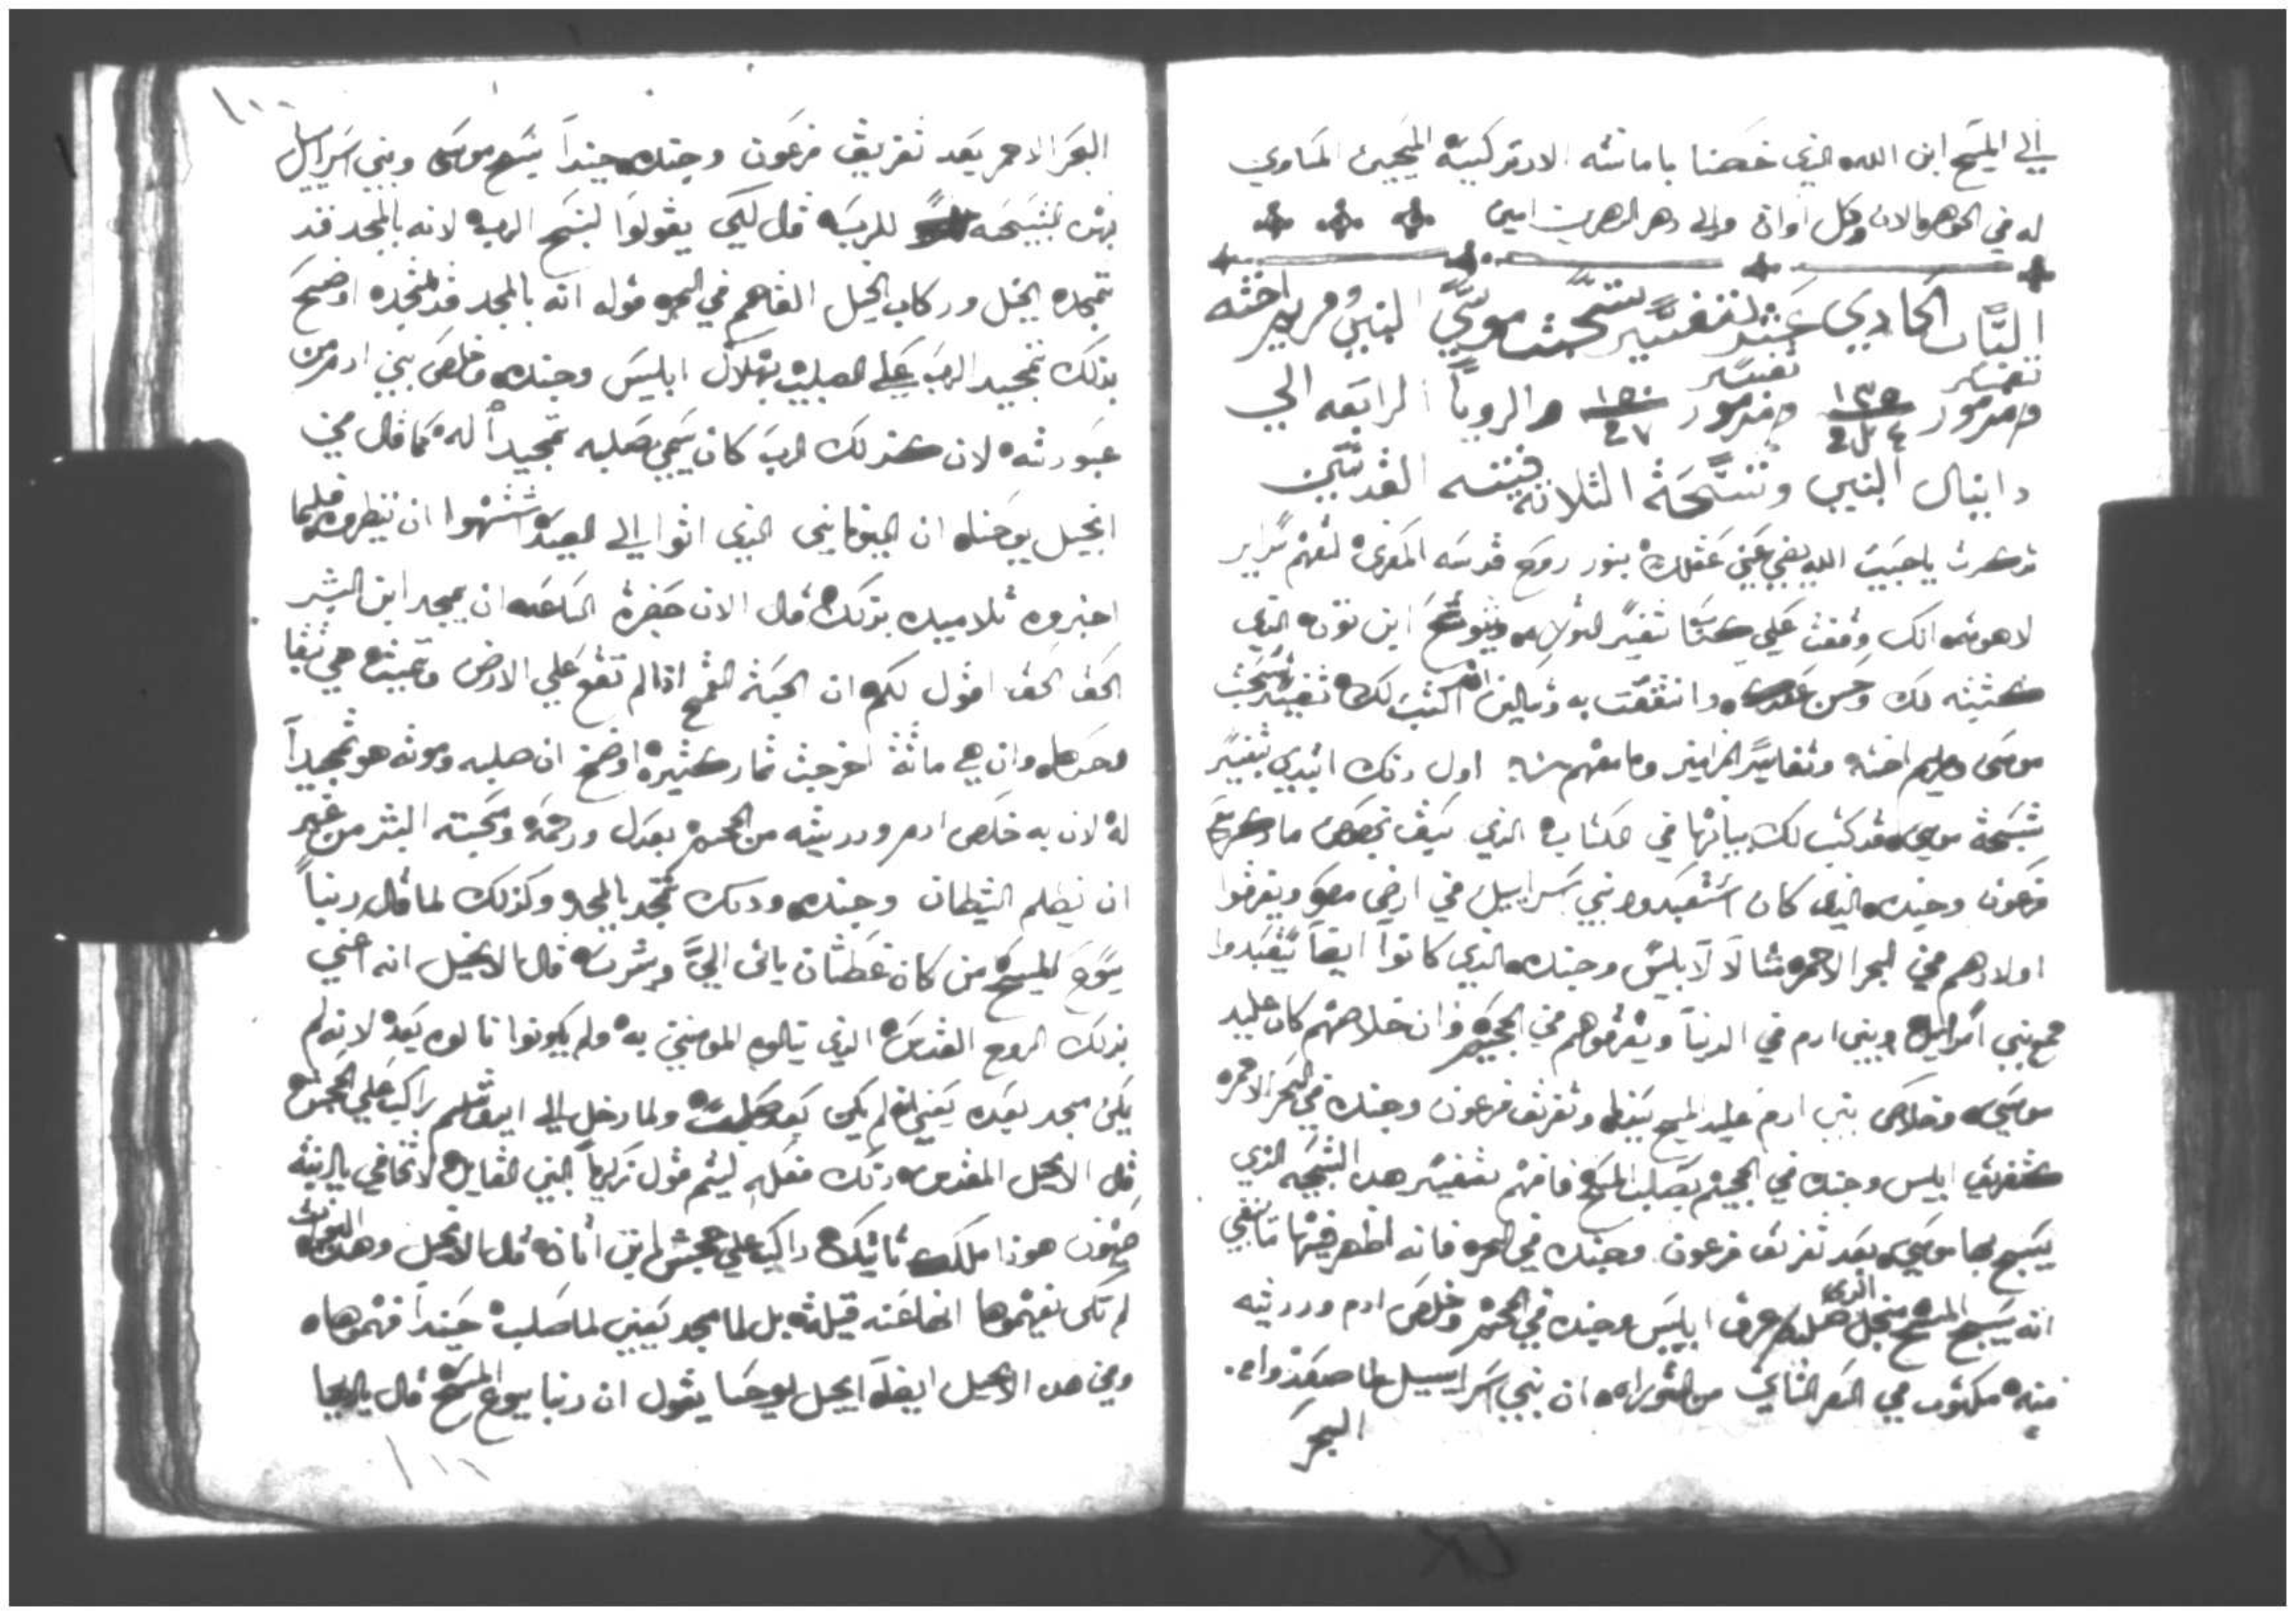 الي المسيح ابن الله الذي خصنا بامانته الارتدكسيه المحيي المساوي
له في الجوهر الان وكل اوان والي دهر الدهرين امين
الباب الحادي عشر تفسير تسبحت موسي النبي ومريم اخته
تفسير تفسير
ومزمور ١٣٥ ومزمور ١٥٠ والرويا الرابعه الي
دانيال النبي وتسبحة الثلاثة فتيه القديسين
ذكرت يا حبيب الله يضي عيني عقلك بنور روح قدسه المعزي لتفهم سراير
لاهوته انك وقفت علي كتاب تفسير ابن نون الذي
كتبته لك وحسن عندك وانتفعت به وتسالني ان اكتب لك تفسير تسبحت
موسي ومريم اخته وتفاسير المزامير وما معهم اول ذلك ابتدي بتفسير
تسبحة موسي قد كتب لك بيانها في الذي كيف
فرعون وجنده الذي كان استعبدوا بني سراييل في ارض مصر ويغرقوا
اولادهم في البحر الاحمر مثالا لابليس وجنده الذي كانوا ايضا يستعبدوا
جميع بني اسراييل وبني ادم في الدنيا ويغرقوهم في الجحيم وان خلاصهم كان عليد
موسي وخلاص بني ادم عليد المسيح وتغريق فرعون وجنده في البحر الاحمر
كتغريق ابليس وجنده في الجحيم بصلب المسيح فافهم تفسير هده التسبحه الذي
يسبح بها موسي بعد تغريق فرعون وجنده في البحر فانه اظهر فيها
الذي
انه يسبح المسيح صلبه غرق ابليس وجنده في الجحيم وخلص ادم ودريته
منه مكتوب في السفر التاني من التوراه ان بني اسراييل لما صعدوا من
البحر
١١٠
البحر الاحمر بعد تغريق فرعون وجنده حيندا يسبح موسي وبني اسراييل
بهده التسبحه للرب قال لكي يقولوا نسبح الرب لانه بالمجد قد
تمجد الخيل وركاب الخيل القاهم في البحر قوله انه بالمجد قد تمجد اوضح
بذلك تمجيد الرب علي الصليب بهلاك ابليس وجنده وخلص بني ادم من
عبوديته لان كذلك الرب كان يسمي صلبه تمجيدا له كما قال في
انجيل يوحنا ان اليونانيين الذي اتوا الي العيد اشتهوا ان ينظروه فلما
اخبروه تلاميده بذلك قال الان حضرة الساعه ان يمجد ابن البشر
الحق الحق اقول لكم ان الحبة القمح اذا لم تقع علي الارض وتميت هي تبقا
وحدها وان هي ماتة اخرجت ثمار كثيرة اوضح ان صلبه وموته هو تمجيدا
له لان به خلص ادم ودريته من الجحيم بعدل ورحمة ومحبته البشر من غير
ان يظلم الشيطان وجنده ودلك تمجد بالمجد وكذلك لما قال ربنا
يسوع المسيح من كان عطشان ياتي الي ويشرب قال الانجيل انه اعني
بذلك الروح القدس الذي ينالوه المومنين به ولم يكونوا نالوه بعد لانه لم
يكن مجد بعد يعني لم يكن بعد صلب ولما دخل الي ايروشليم راكب علي الجحش
قال الانجيل المقدس ذلك فعله ليتم قول زكريا النبي القايل لا تخافي يا ابنته
صهيون هوذا ملكك ياتيك راكب علي جحش ابن اتان قال الانجيل وهده
لم تكن تفهموها انها عنه قيلة بل لما مجد يعني لما صلب حيندا فهموها
وفي هدا الانجيل ايضا انجيل يوحنا يقول ان ربنا يسوع المسيح قال